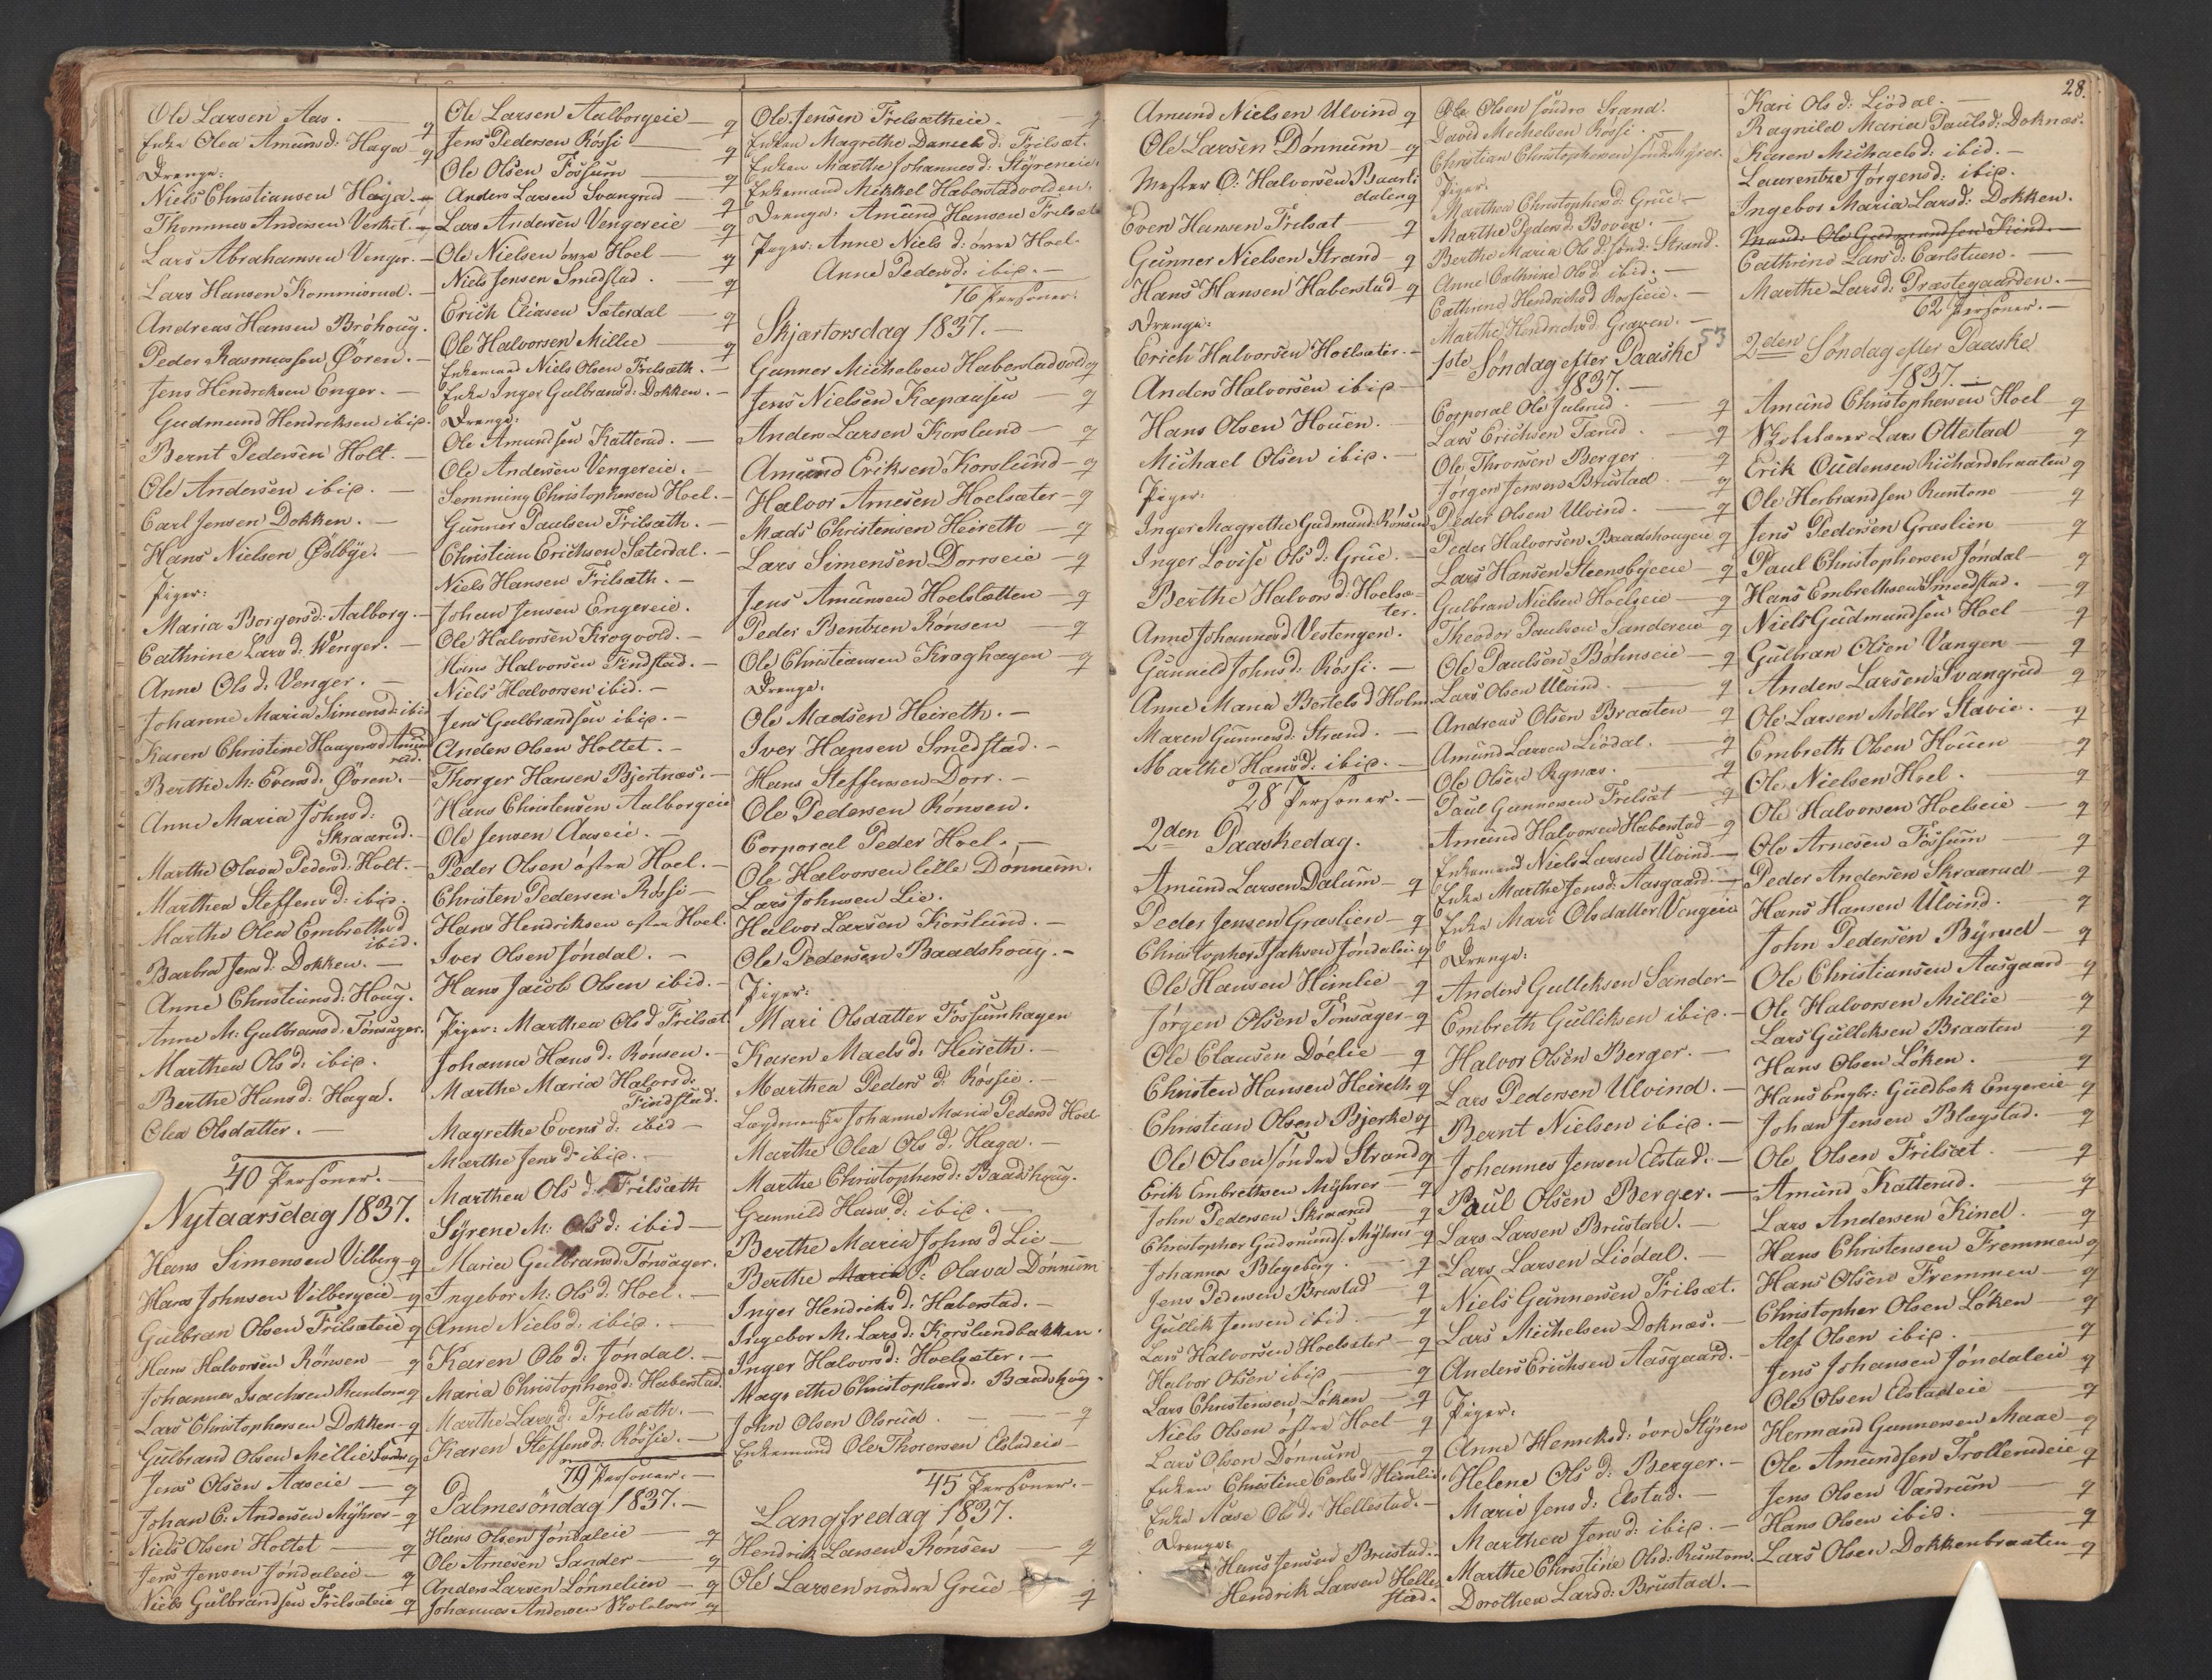 Ole Larsen Aas. — q
Enke Olea Amunsd: Haga — q
Drenge:
Niels Christiansen Haga. —
Thommes Andersen Verket. —
Lars Abrahamsen Venger. —
Lars Hansen Kommisrud. —
Andreas Hansen Bróhoug.
Peder Rasmussen Øoren. —
Jens Hendriksen Enger. —
Gudmund Hendriksen ibid.
Bernt Pedersen Holt. —
Ole Andersen ibid. —
Carl Jensen Dokken. —
Hans Nielsen Østbye. —
Piger:
Maria Borgersd: Aalborg. —
Cathrine Lars d: Wenger. —
Anne Ols d. Venger. —
Johanne Maria Simensd: ibid
Karen Christine Haagensd Amund
rud.
Berthe M: Evensd. Øoren. —
Anne Maria Johnsd:
Skraarud. —
Marthe Olava Pedersd. Holt. —
Marthea Steffens d: ibid.
Marthe Olea Embrethsd
ibid.
Barbra Jensd: Dokken. —
Anne Christiansd: Houg.
Anne M: Gulbransd: Tónsager.
Marthea Ols d: ibid.
Berthe Hansd. Haga.
Olea Olsdatter. —
40 Personer. —
Nytaarsdag 1837.
Hans Simensen Vilberg — q
Hans Johnsen Vilbergeie — q
Gulbran Olsen Frilsæteie q
Hans Halvorsen Rónsen — q
Johannes Isachsen Runtom q
Lars Christophersen Dokken — q
Gulbrand Olsen Millie q
Jens Olsen Aaseie — q
Johan C: Andersen Myhrer — q
Niels Olsen Holtet — q
Jens Jensen Jóndaleie — q
Niels Gulbrandsen Frilsæteie q
Ole Larsen Aalborgeie — q
Jens Pedersen Róssi — q
Ole Olsen Fossum — q
Anders Larsen Svangrud — q
Lars Andersen Vengereie — q
Ole Nielsen óvre Hoel — q
Niels Jensen Smedstad. — q
Erich Eliasen Sæterdal — q
Ole Halvorsen Millie — q
Enkemand Niels Olsen Frilsæth. —
Enke Inger Gulbransd: Dokken. —
Drenge:
Ole Amundsen Katterud. —
Ole Andersen Vengereie. —
Semming Christophersen Hoel. —
Gunner Paulsen Frilsæth. —
Christian Erichsen Sæterdal. —
Niels Hansen Frilsæth. —
Johan Jensen Engereie.
Ole Halvorsen Krogvold. —
Hans Halvorsen Findstad. —
Niels Halvorsen ibid. —
Jens Gulbrandsen ibid. —
Anders Olsen Holtet. —
Thorger Hansen Bjertnæs. —
Hans Christensen Aalborgeie
Ole Jensen Aaseie. —
Peder Olsen óstre Hoel. —
Christen Pedersen Róssi —
Hans Hendriksen ostre Hoel.
Iver Olsen Jóndal. —
Hans Jacob Olsen ibid. —
Piger: Marthea Ols d Frilsæt.
Johanne Hans d: Rónsen. —
Marthe Maria Halvors d:
Findstad.
Magrethe Evens d: ibid —
Marthe Jens d: ibid. —
Marthea Ols d: Frilsæth
Syrene M: Ols d: ibid —
Maria Gulbransd: Tónsager.
Ingebor M: Ols d: Hoel. —
Anne Niels d: ibid. —
Karen Ols d: Jóndal. —
Maria Christophersd: Haberstad.
Marthe Lars d: Frilsæth. —
Karen Steffensd: Róssie. —
79 Personer. —
Palmesóndag 1837. —
Hans Olsen Jóndaleie — q
Ole Arnesen Sander — q
Anders Larsen Lónnelien — q
Johannes Andersen Skolelærer q
Ole Jensen Frelsætheie. — q
Enken Magrethe Daniels d: Frilsæt.
Enken Marthe Johannes d: Styreneie.
Enkemand Mikkel Haberstadvolden.
Drenge: Amund Hansen Frilsæt
Piger: Anne Niels d: óvre Hoel.
Anne Peders d: ibid. —
16 Personer.
Skjærtorsdag 1837. —
Gunner Michelsen Haberstadvold q
Jens Nielsen Kapausen — q
Anders Larsen Korslund — q
Amund Eriksen Korslund — q
Halvor Arnesen Hoelsæter — q
Mads Christensen Heireth — q
Lars Simensen Dorrseie — q
Jens Amunsen Hoelslætten — q
Peder Bentzen Rónsen — q
Ole Christiansen Kraghagen — q
Drenge:
Ole Madsen Heireth. —
Iver Hansen Smedstad. —
Hans Steffensen Dorr. —
Ole Pedersen Rónsen.
Corporal Peder Hoel. —
Ole Halvorsen lille Dónnum.
Lars Johnsen Lie.
Halvor Larsen Korslund. —
Ole Pedersen Baadshoug. —
Piger:
Mari Olsdatter Fossumhagen
Karen Mads d: Heireth. —
Marthea Peders d: Róssie. —
Johanne Maria Pedersd Hoel
Marthe Olea Ols d: Haga. —
Marthe Christophersd: Baadshoug.
Gunnild Hans d: ibid. —
Berthe Maria Johns d Lie —
Berthe Maria P: Olava Dónnum
Inger Hendriks d: Haberstad. —
Ingebor M: Lars d: Korslundbakken.
Inger Halvors d: Hoelsæter. —
Magrethe Christophersd: Baadshoug.
John Olsen Olsrud. — q
Enkemand Ole Thoresen Elstadeie —
45 Personer. —
Langfredag 1837.
Hendrik Larsen Rónsen — q
Ole Larsen nordre Grue — q
28.
Amund Nielsen Ulvind q
Ole Larsen Dónnum — q
Mester O: Halvorsen Baarli
dalen q
Even Hansen Frilsæt — q
Gunner Nielsen Strand — q
Hans Hansen Haberstad q
Drenge:
Erich Halvorsen Hoelsæter. —
Anders Halvorsen ibid —
Hans Olsen Houen. —
Michael Olsen ibid. —
Piger:
Inger Magrethe Gudmunds Rónsen
Inger Lovise Ols d: Grue. —
Berthe Halvors d: Hoelsæ-
ter.
Anne Johannesd Vestengen.
Gunnild Johns d: Róssi. —
Anne Maria Bertels d Holm.
Maren Gunnersd: Strand. —
Marthe Hansd: ibid. —
28 Personer. —
2den Paaskedag.
Amund Larsen Dalum — q
Peder Jensen Græslien — q
Christopher Isaksen Jóndaleie q
Ole Hansen Himlie — q
Jórgen Olsen Tónsager — q
Ole Clausen Dóelie — q
Christen Hansen Heireth q
Christian Olsen Bjerke q
Ole Olsen sóndre Strand q
Erik Embrethsen Myhrer — q
John Pedersen Skraarud — q
Christopher Gudmunds. Myhrer — q
Johannes Blegeberg. — q
Jens Pedersen Brustad — q
Gullik Jensen ibid. — q
Lars Halvorsen Hoelsæter — q
Halvor Olsen ibid — q
Lars Christensen Lóken — q
Niels Olsen óstre Hoel — q
Lars Olsen Dónnum — q
Enken Christine Carlsd Himlie.
Enke Aase Ols d: Hellestad. —
Drenge:
Hans Jensen Brustad. —
Hendrik Larsen Helle-
stad.
Ole Olsen sóndre Strand.
David Mechelsen Róssi. —
Christian Christophersen sónd. Myhrer.
Piger:
Marthea Christophersd: Grue. —
Marthe Peders d: Boven. —
Berthe Maria Ols d: sónd: Strand.
Anne Cathrine Ols d. ibid. —
Cathrine Hendriksd Rossieie. —
Marthe Hendriksd: Graven. —
53
1ste Søndag efter Paaske
1837. —
Corporal Ole Julsrud. — q
Lars Erichsen Tærud. — q
Ole Thronsen Berger — q
Jørgen Jensen Brustad. — q
Peder Olsen Ulvind. — q
Peder Halvorsen Baadshougeie q
Lars Hansen Steensbyeeie — q
Gulbran Nielsen Hoelseie — q
Theodor Paulsen Sandereie q
Ole Paulsen Bóhnseie — q
Lars Olsen Ulvind. — q
Andreas Olsen Braaten — q
Amund Larsen Liódal. — q
Ole Olsen Rognæs. q
Paul Gunnersen Frilsæt — q
Amund Halvorsen Haberstad — q
Enkemand Niels Larsen Ulvind —
Enke Marthe Jensd: Aasgaard. —
Enke Mari Olsdatter Vengeie
Drenge:
Anders Gulliksen Sander —
Embreth Gulliksen ibid. —
Halvor Olsen Berger. —
Lars Pedersen Ulvind. —
Bernt Nielsen ibid. —
Johannes Jensen Elstad. —
Paul Olsen Berger. —
Lars Larsen Brustad. —
Lars Larsen Liódal. —
Niels Gunnersen Frilsæt.
Lars Michelsen Doknæs. —
Anders Erichsen Aasgaard. —
Piger:
Anne Henriksd: óvre Styren
Helene Ols d: Berger. —
Marie Jens d: Elstad. —
Marthea Jens d: ibid. —
Marthe Christine Olsd: Runtom.
Dorothea Larsd: Brustad. —
Kari Ols d: Liódal. —
Ragnild Maria Paulsd: Doknæs.
Karen Michaels d: ibid. —
Laurentze Jórgensd: ibid.
Ingebor Maria Lars d: Dokken.
Mand: Ole Gudmundsen Kind. —
Cathrine Lars d. Carlstuen. —
Marthe Lars d: Præstegaarden. —
62 Personer. —
2den Søndag efter Paaske
1837. —
Amund Christophersen Hoel — q
Skolelærer Lars Ottestad q
Erik Oudensen Richardsbraaten q
Ole Herbrandsen Runtom — q
Jens Pedersen Græslien q
Paul Christophersen Jóndal — q
Hans Embrethsen Smedstad. — q
Niels Gudmundsen Hoel q
Gulbran Olsen Vangen — q
Anders Larsen Svangrud q
Ole Larsen Móller Stavie. — q
Embreth Olsen Houen q
Ole Nielsen Hoel. q
Ole Halvorsen Hoelseie — q
Ole Arnesen Fossum q
Peder Andersen Skraarud — q
Hans Hansen Ulvind. — q
John Pedersen Byrud — q
Ole Christiansen Aasgaard — q
Ole Halvorsen Millie — q
Lars Gulliksen Braaten — q
Hans Olsen Lóken. q
Hans Engbr: Guldbæk Engereie — q
Johan Jensen Blagstad. — q
Ole Olsen Frilsæt. — q
Amund Katterud. — q
Lars Andersen Kind. — q
Hans Christensen Fremmen q
Hans Olsen Fremmen — q
Christopher Olsen Lóken — q
Alf Olsen ibid. — q
Jens Johansen Jóndaleie q
Ole Olsen Elstadeie — q
Hermand Gunnersen Maae — q
Ole Amundsen Trollerudeie q
Jens Olsen Vardrum — q
Hans Olsen ibid. — q
Lars Olsen Dokkenbraaten — q